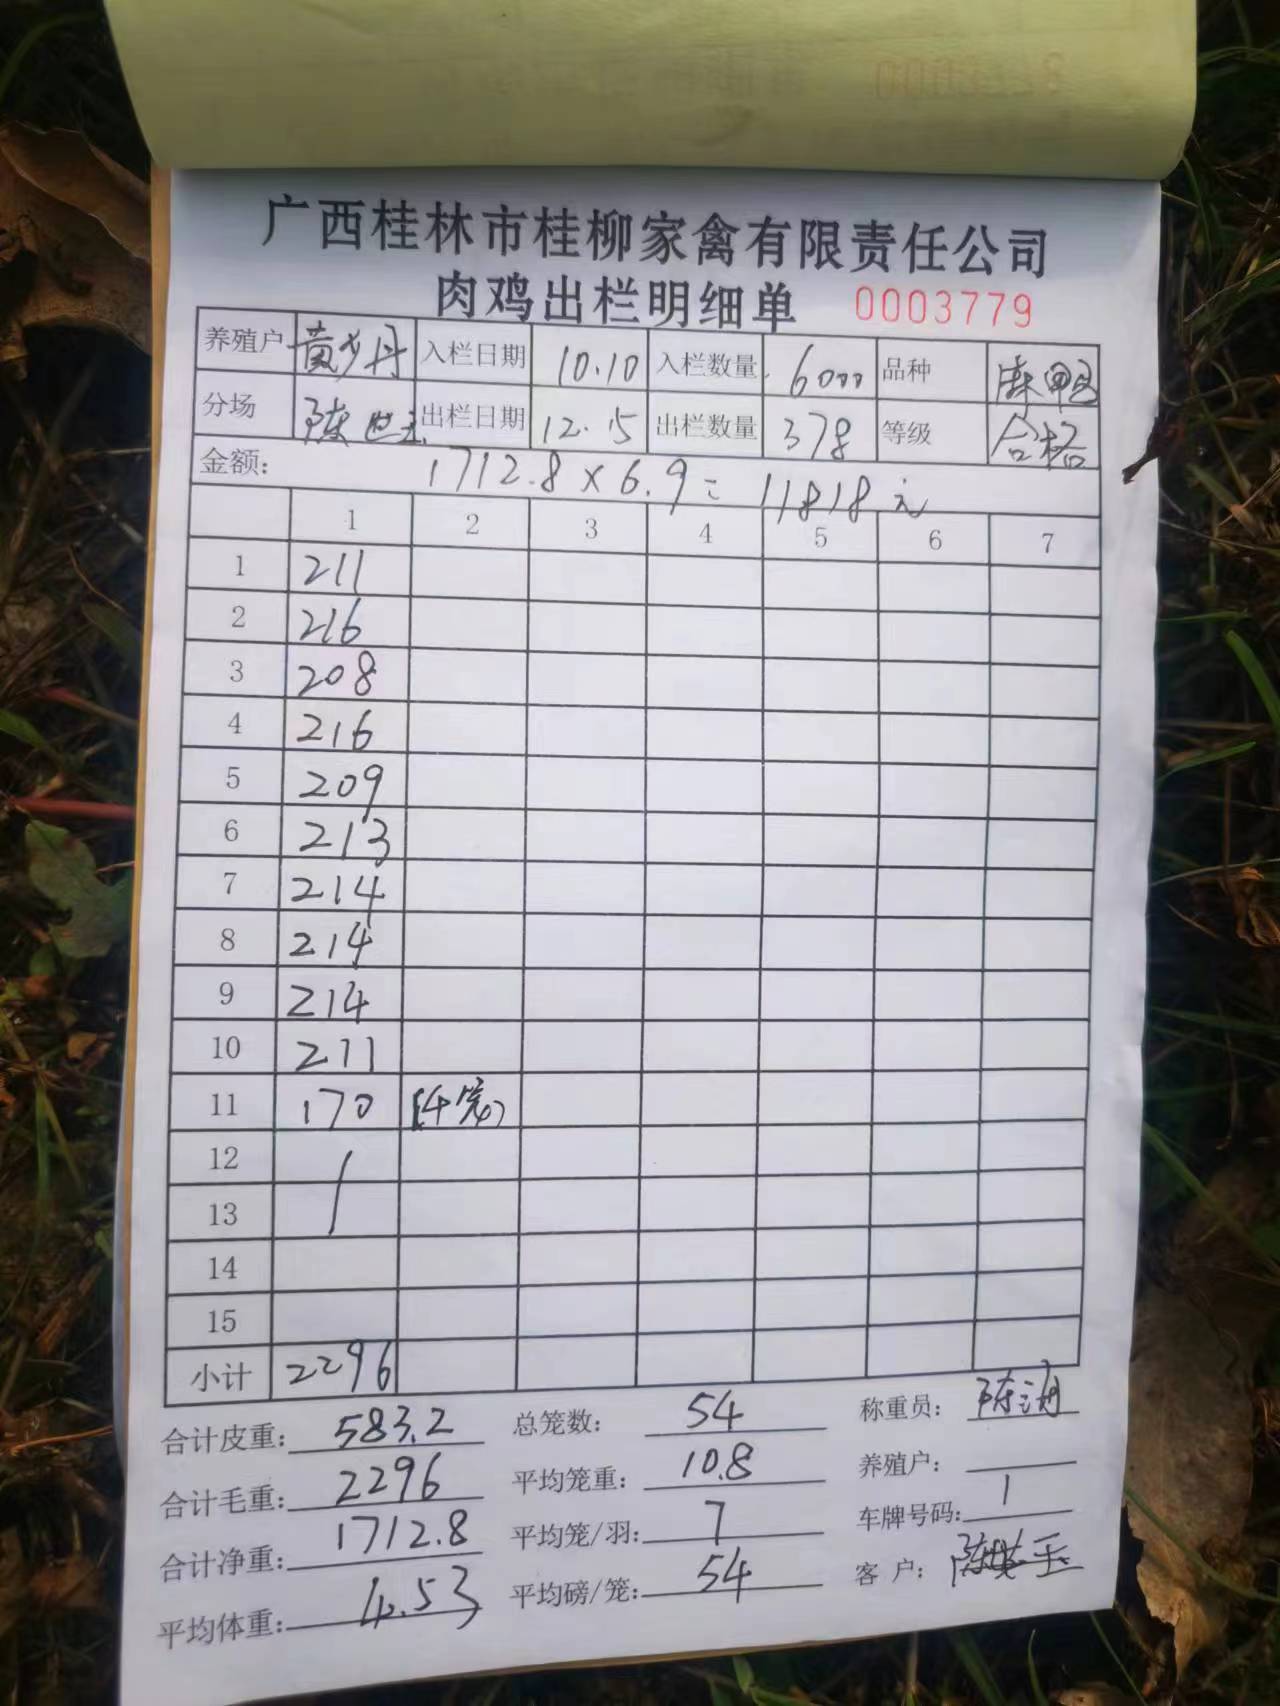 广西桂林市桂柳家禽有限责任公司
肉鸡出栏明细单 0003779
养殖户 黄少丹 入栏日期 10.10 入栏数量 6000 品种 麻鸭
分场 陈世 出栏日期 12.15 出栏数量 378 等级 合格
金额: 1712.8×6.9=11818元
1 2 3 4 5 6 7
1 211
2 216
3 208
4 216
5 209
6 213
7 214
8 214
9 214
10 211
11 170 (4笼)
12
13
14
15
小计 2296
合计皮重: 583.2 总笼数: 54 称重员: 陈海
合计毛重: 2296 平均笼重: 10.8 养殖户:
合计净重: 1712.8 平均笼/羽: 7 车牌号码:
平均体重: 4.53 平均磅/笼: 54 客户: 陈